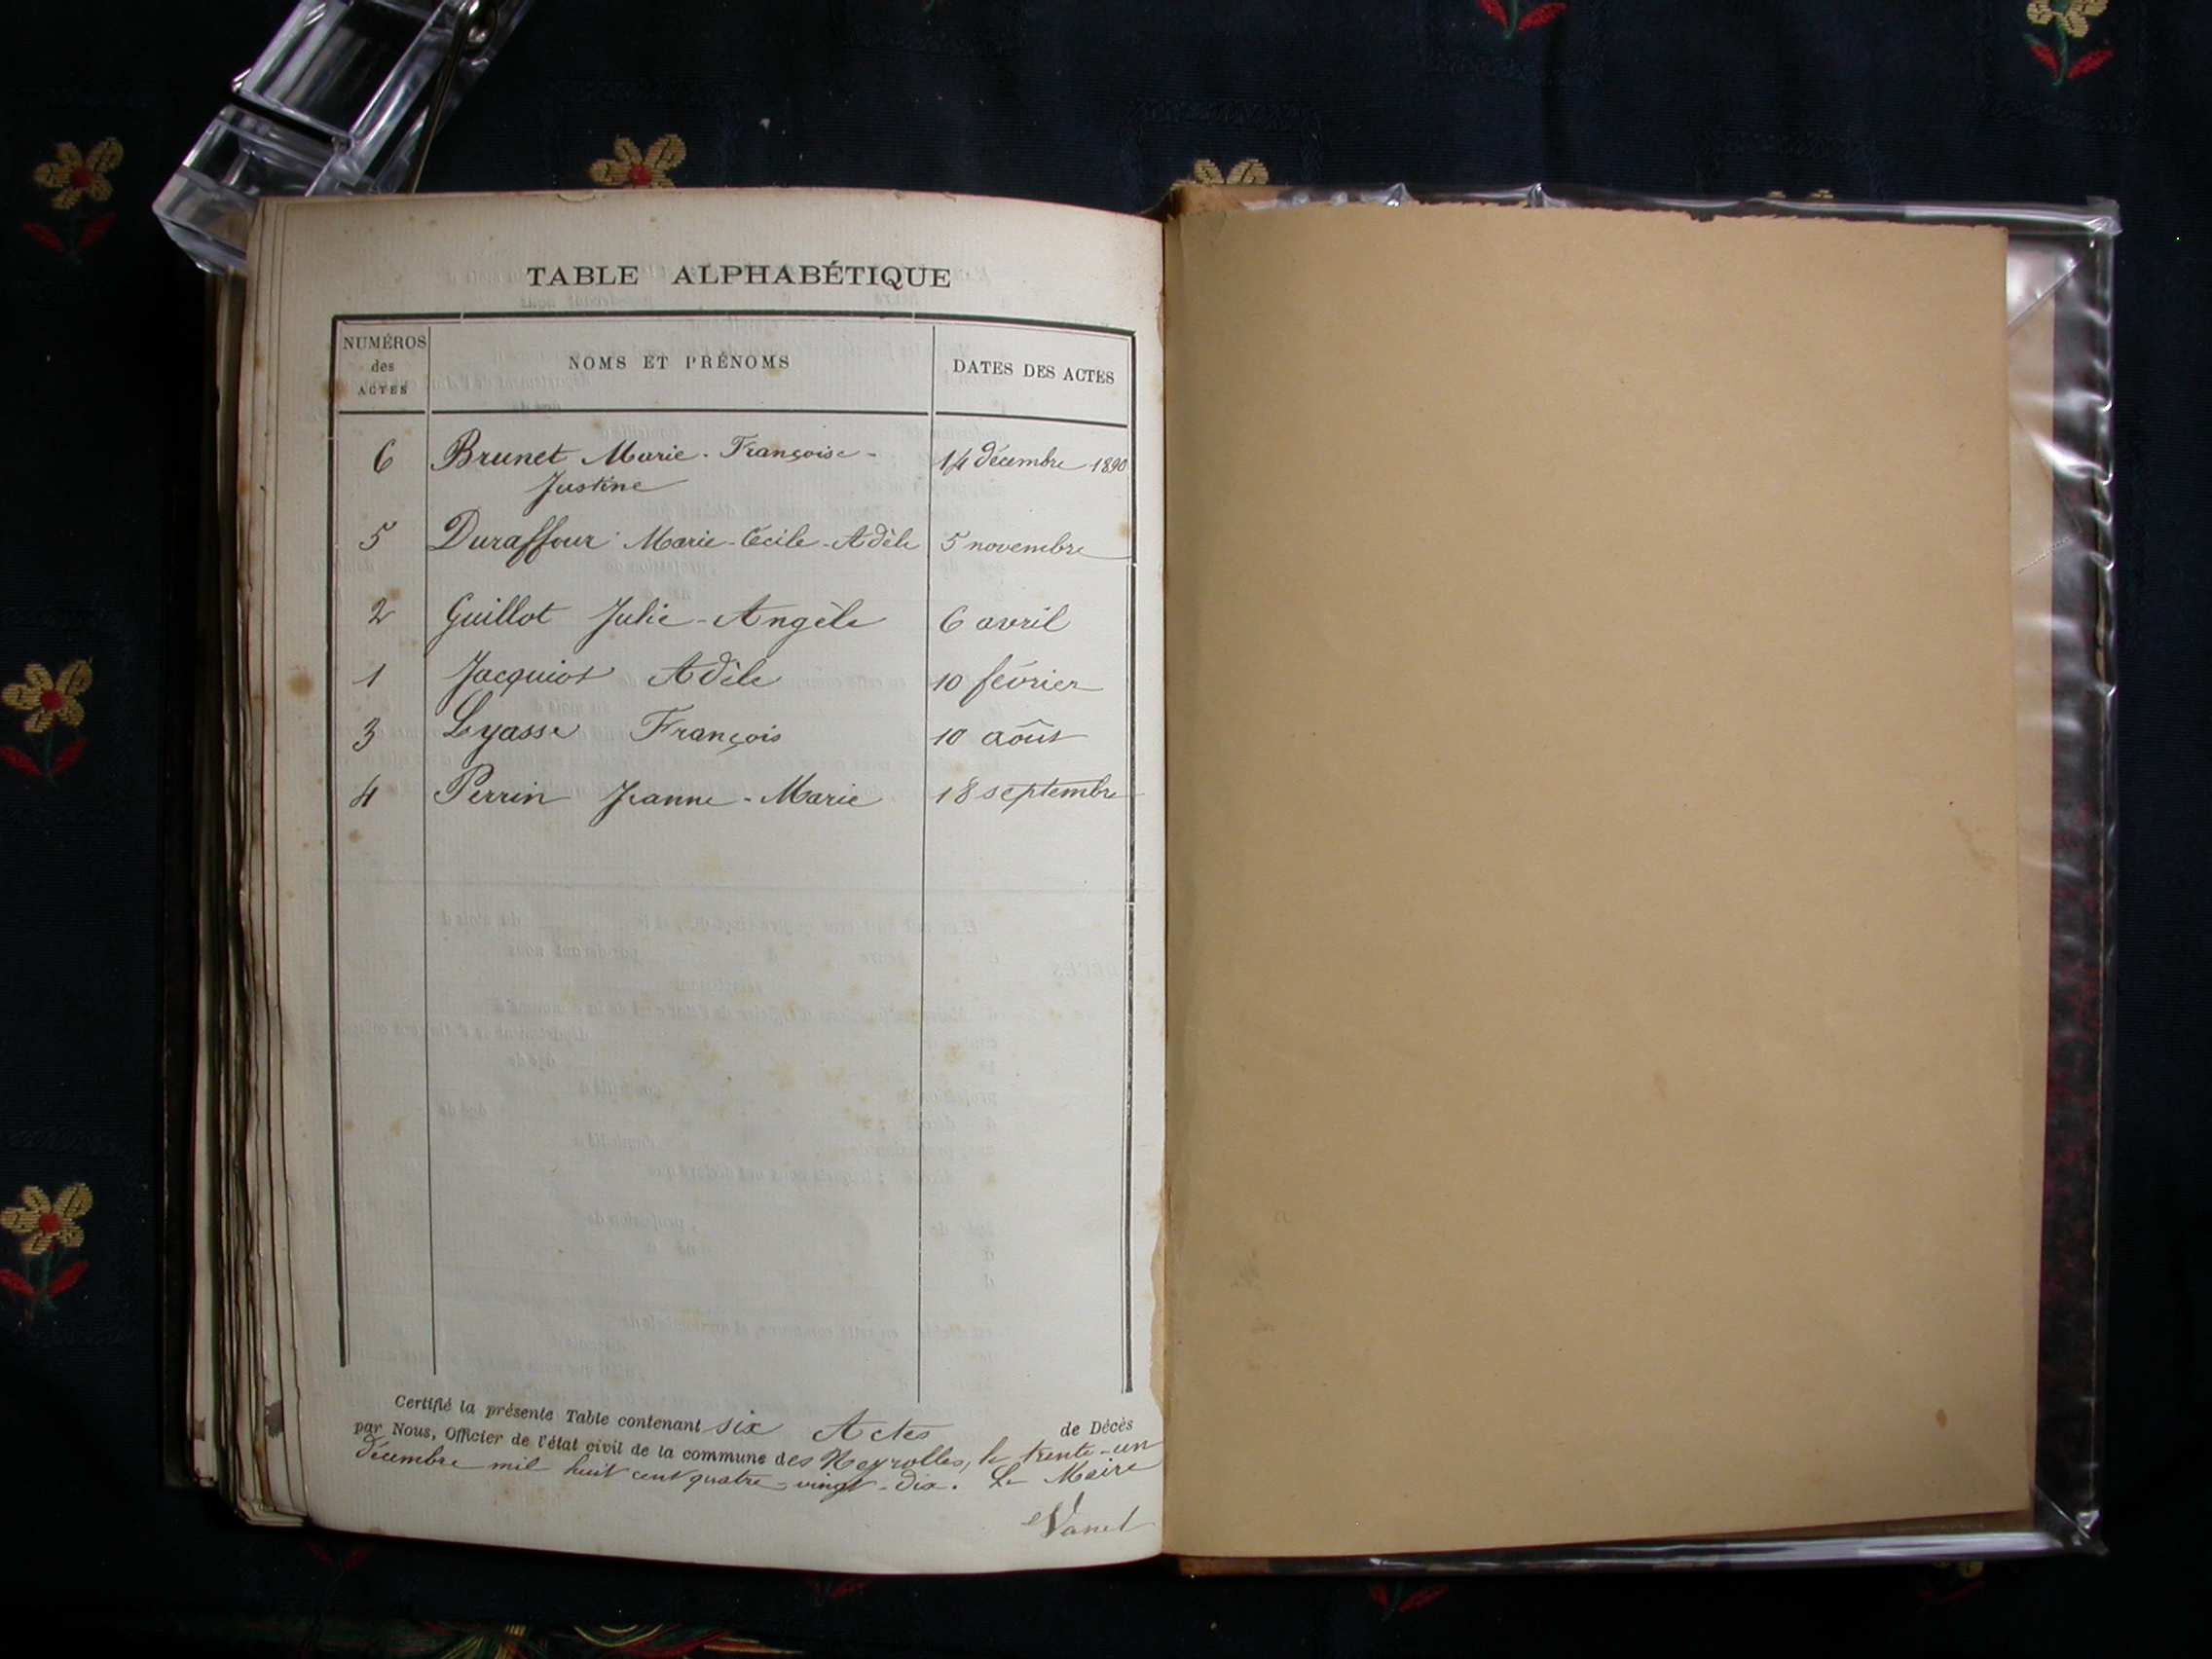 TABLE ALPHABÉTIQUE
NUMÉROS des ACTES NOMS ET PRÉNOMS DATES DES ACTES
6 Brunet Marie-Françoise- 14 décembre 1890
Justine
5 Duraffour Marie-Cécile-Adèle 5 novembre
2 Guillot Julie-Angèle 6 avril
1 Jacquiot Adèle 10 février
3 Lyasse François 10 août
4 Perrin Jeanne-Marie 18 septembre
Certifié la présente Table contenant six Actes de Décès
par Nous, Officier de l'état civil de la commune des Neyrolles, le trente-un
décembre mil huit cent quatre-vingt-dix. Le Maire
Vanel